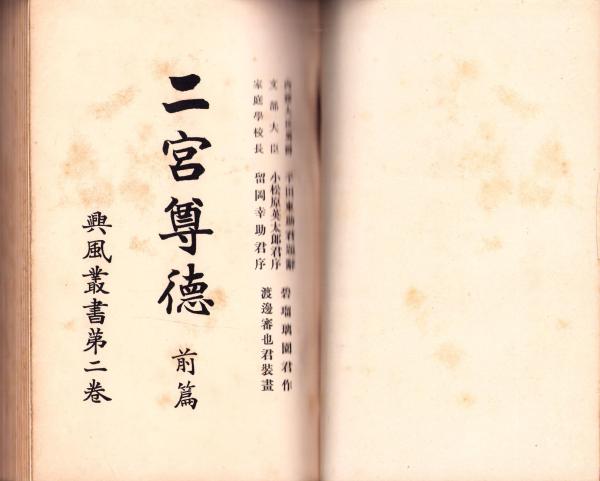 內務大臣男爵 平田東助君題辭 碧瑠璃園君作
文部大臣 小松原英太郎君序
家庭學校長 留岡幸助君序 渡邊審也君裝畫
二宮尊德 前篇
興風叢書第二卷